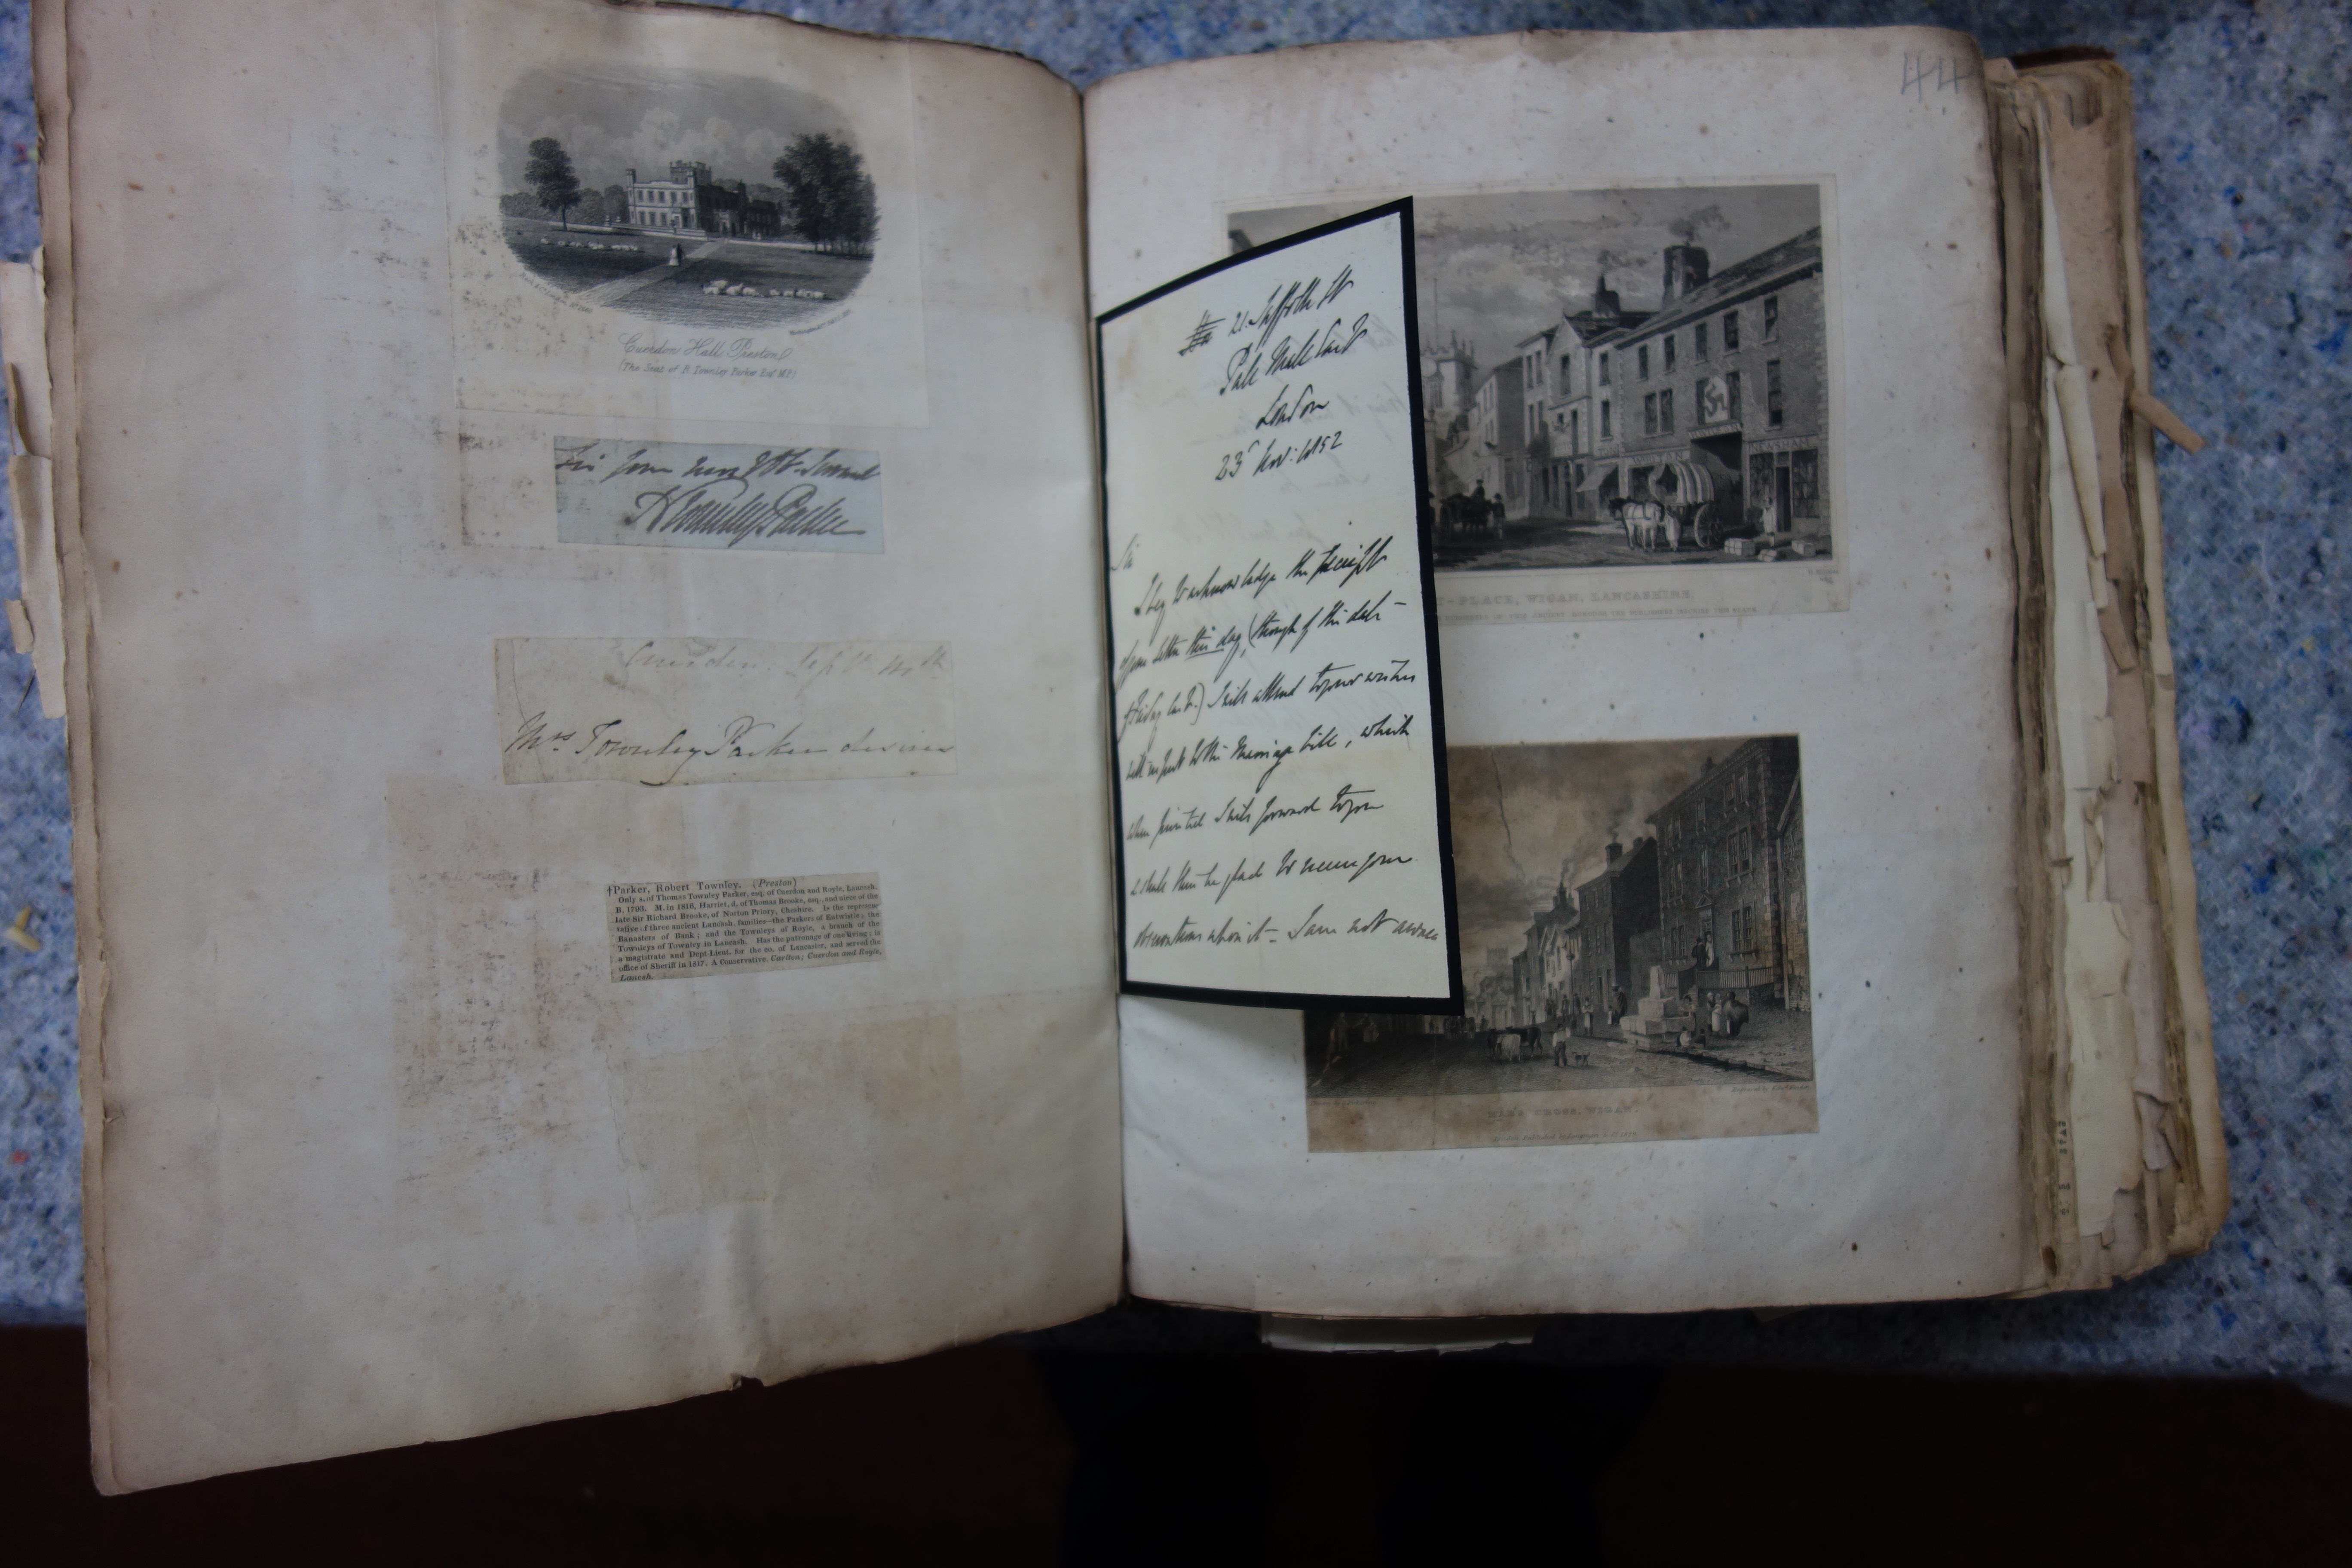 Cuerdon Hall Preston
(The Seat of R. Townley Parker Esqr. M.P.)
Sir your most Obt. Servant
R Townley Parker
Cuerden. Sept
Mrs Townley Parker desires
†Parker, Robert Townley. (Preston)
Only s. of Thomas Townley Parker, esq. of Cuerden and Royle, Lancash.
B. 1793. M. in 1816, Harriet, d. of Thomas Brooke, esq., and niece of the
late Sir Richard Brooke, of Norton Priory, Cheshire. Is the represen-
tative of three ancient Lancash. families—the Parkers of Entwistle; the
Banasters of Bank; and the Townleys of Royle, a branch of the
Towneleys of Towneley in Lancash. Has the patronage of one living; is
a magistrate and Dept Lieut. for the co. of Lancaster, and served the
office of Sheriff in 1817. A Conservative. Carlton; Cuerden and Royle,
Lancash.
44
21 Suffolk St
Pall Mall East
London
23d Nov: 1852
Sir
I beg to acknowledge the receipt
of your letter this day, (though of the date
Friday last.) I will attend to your wishes
with respect to the Marriage Bill, which
when printed I will forward to you
& shall then be glad to receive your
observations upon it - I am not aware
NEWSHAM
-PLACE, WIGAN, LANCASHIRE.
CROSS, WIGAN.